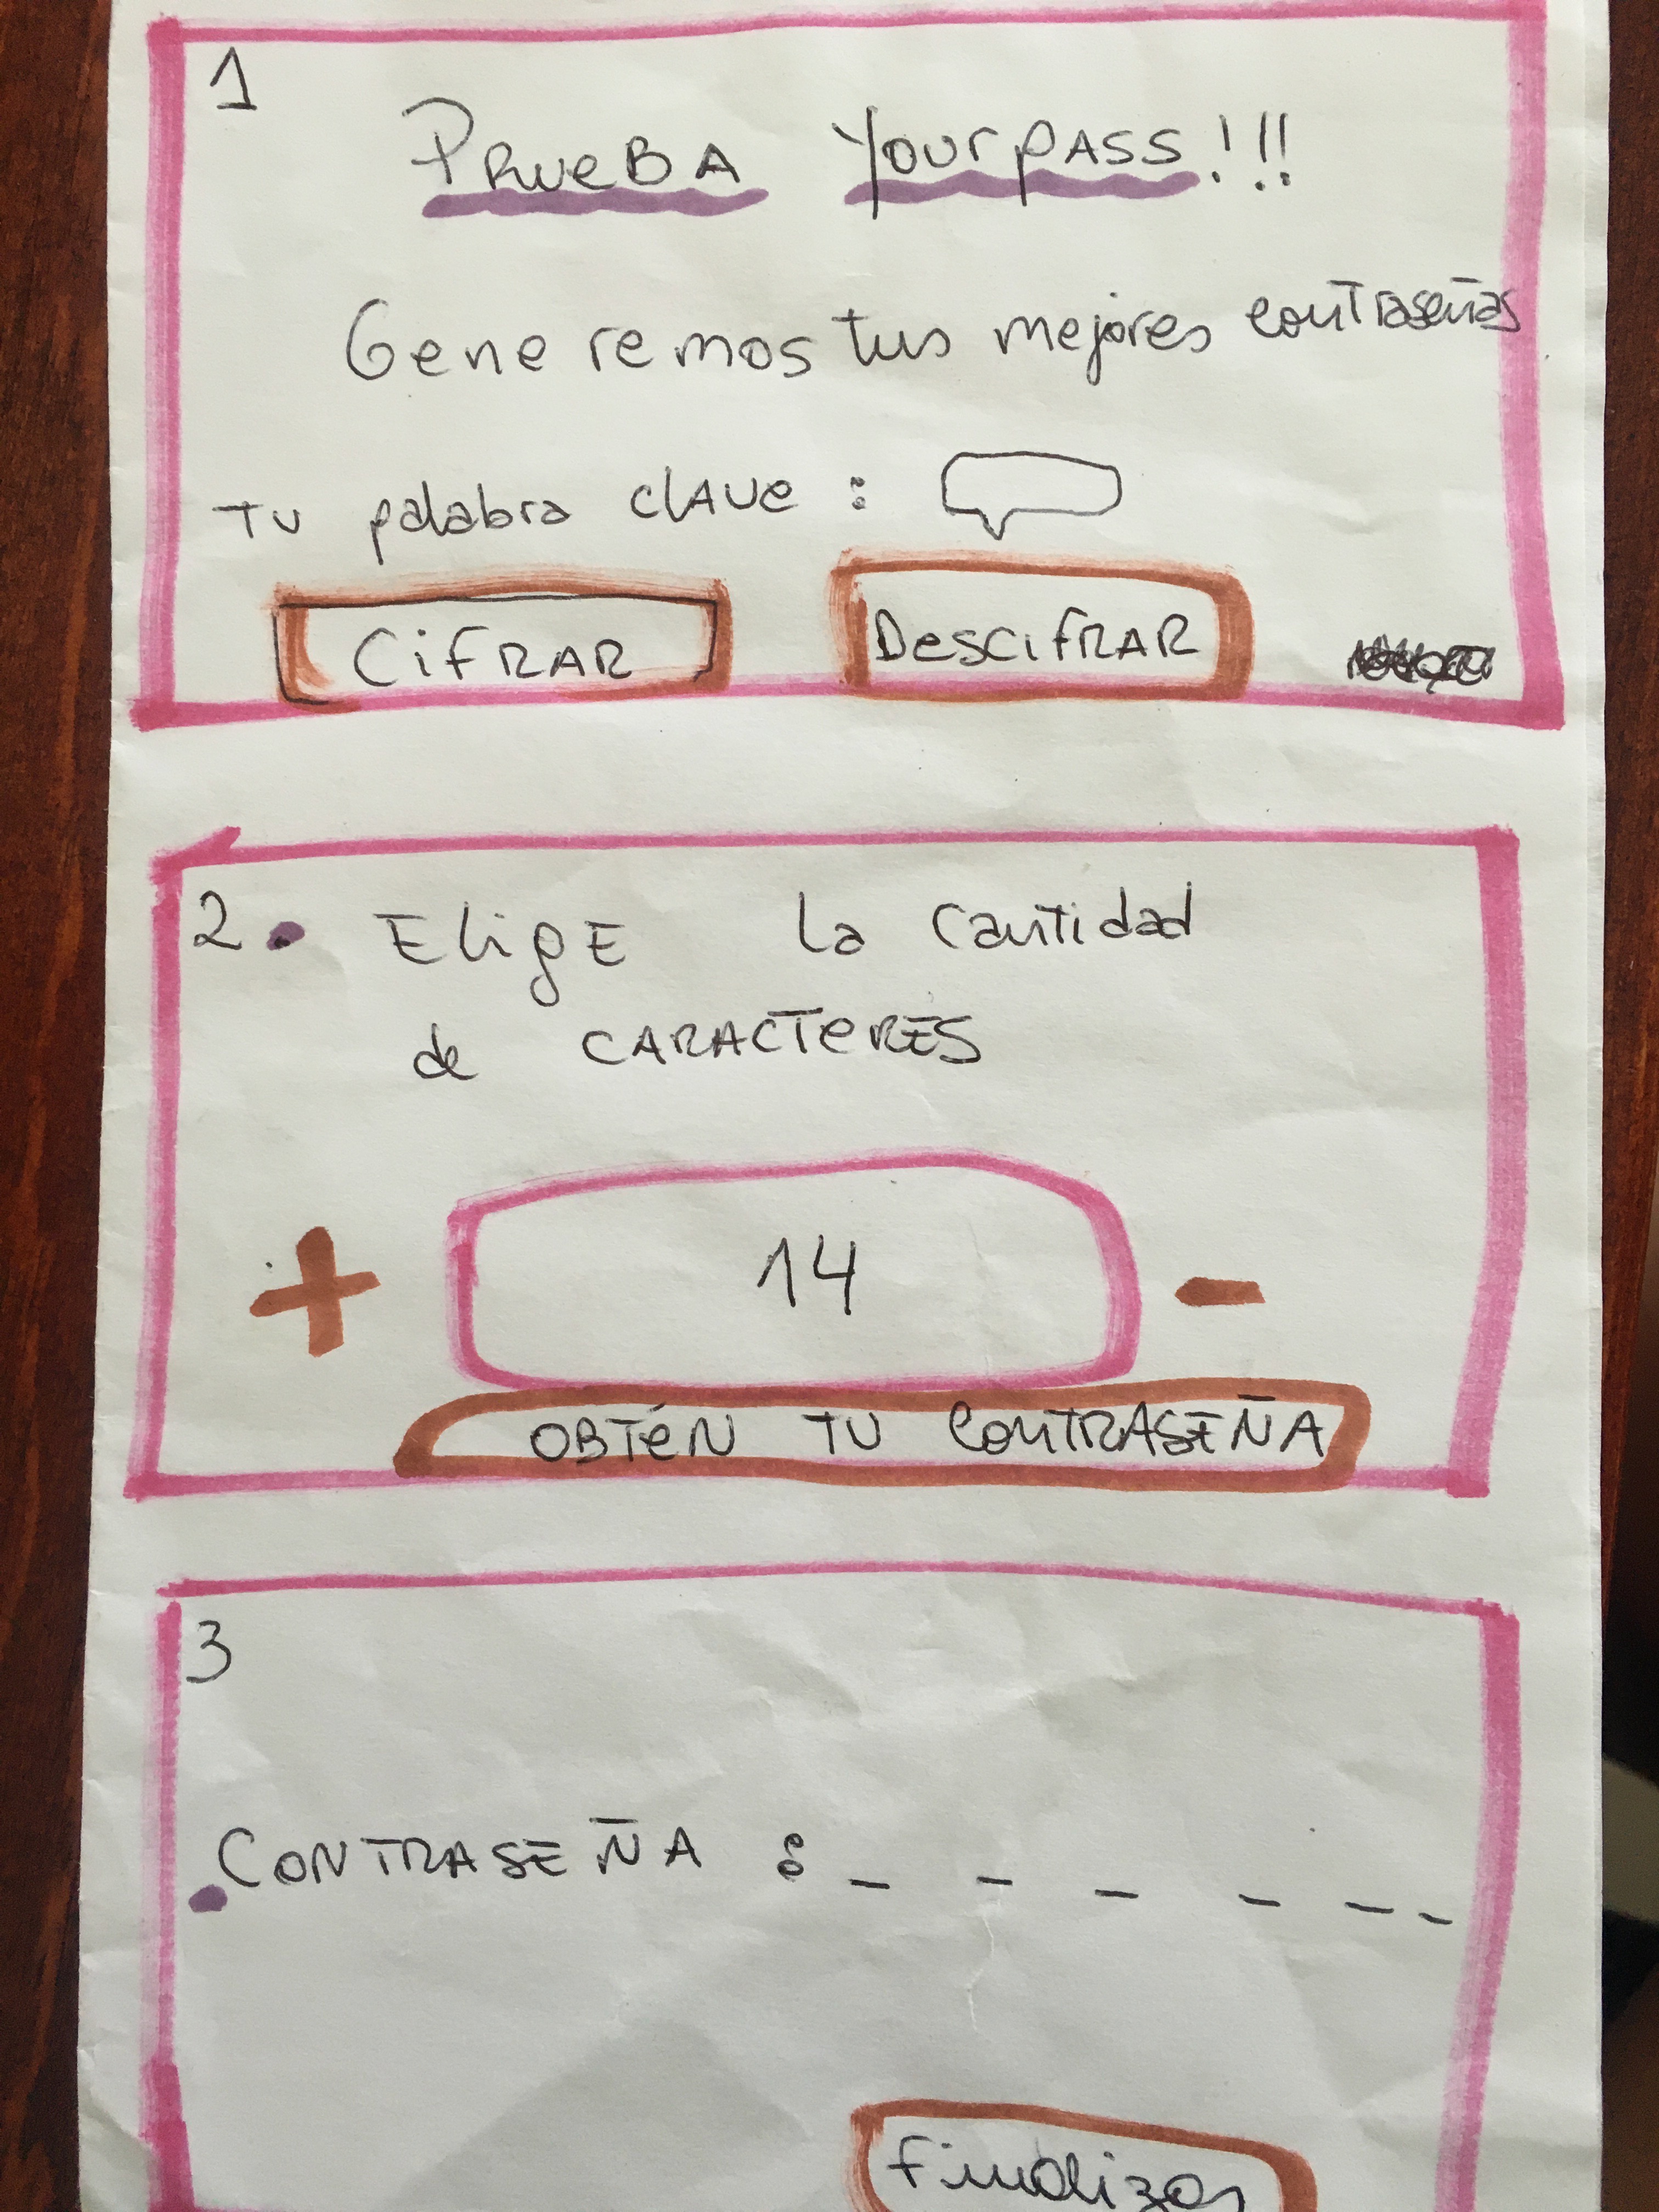 1
PRUEBA YOURPASS!!!
Generemos tus mejores contraseñas
TU palabra CLAVE :
CIFRAR
DESCIFRAR
2. ELIGE La cantidad
de CARACTERES
+ 14 -
OBTÉN TU CONTRASEÑA
3
.CONTRASEÑA : _ _ _ _ _ _
finalizar